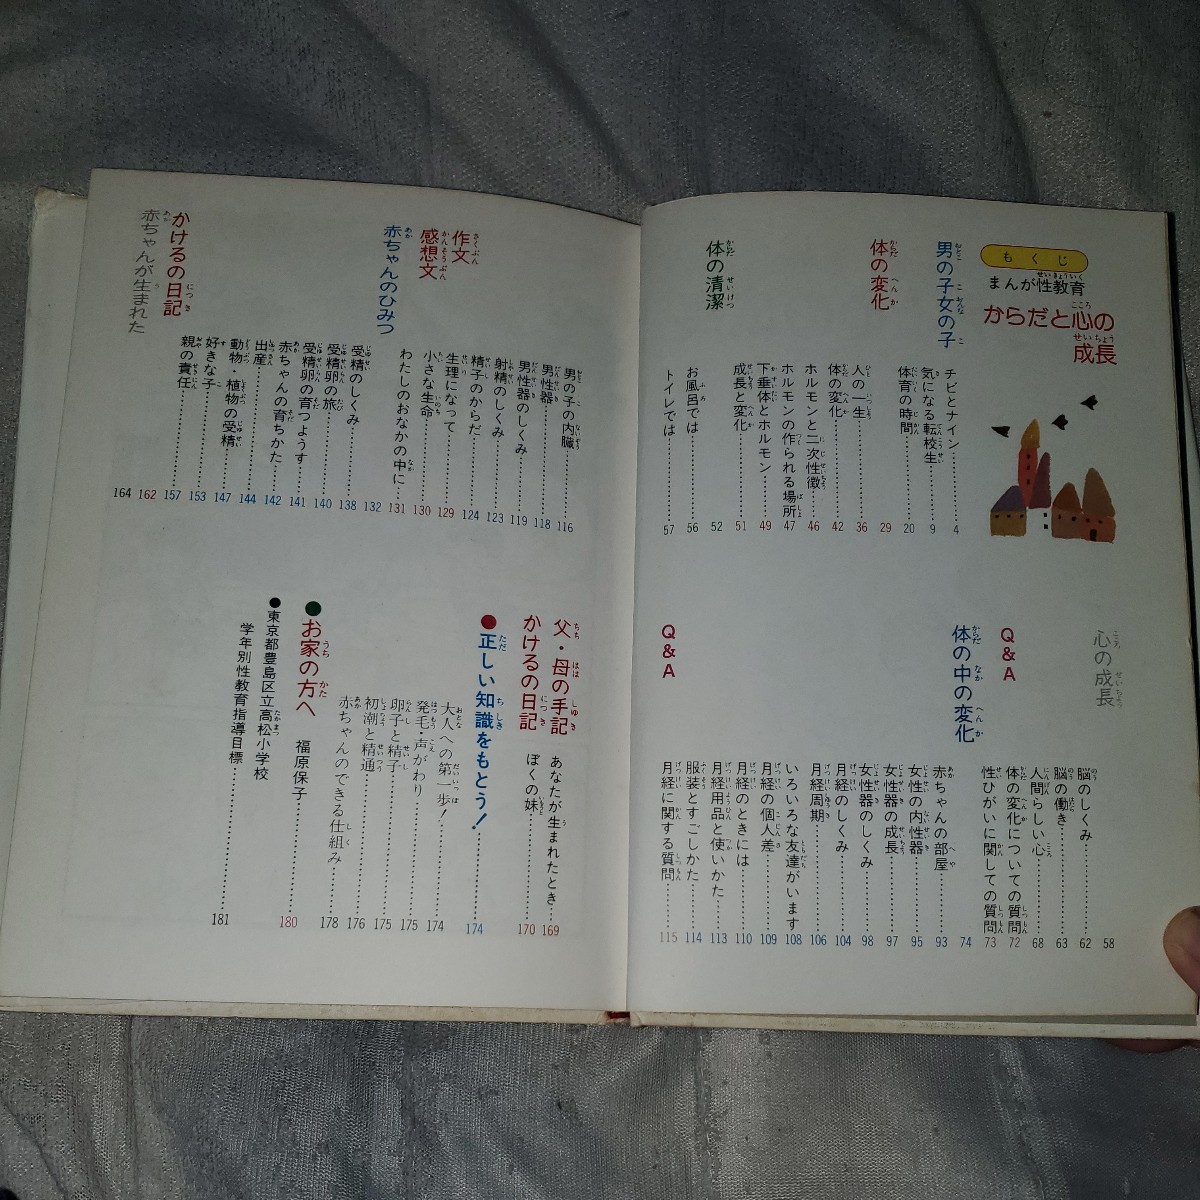 もくじ
まんが性教育
からだと心の
成長
男の子女の子
チビとナイン……4
気になる転校生……9
体育の時間……20
体の変化 29
人の一生……36
体の変化……42
ホルモンと二次性徴……46
ホルモンの作られる場所 47
下垂体とホルモン……49
成長と変化……51
体の清潔 52
お風呂では……56
トイレでは……57
心の成長 58
脳のしくみ……62
脳の働き……63
人間らしい心……68
Q&A 体の変化についての質問 72
性ひがいに関しての質問 73
体の中の変化 74
赤ちゃんの部屋……93
女性の内性器……95
女性器の成長……97
女性器のしくみ……98
月経のしくみ……104
月経周期……106
いろいろな友達がいます 108
月経の個人差……109
月経のときには……110
月経用品と使いかた……113
服装とすごしかた……114
Q&A 月経に関する質問……115
男の子の内臓……116
男性器……118
男性器のしくみ……119
射精のしくみ……123
精子のからだ……124
作文 生理になって……129
感想文 小さな生命……130
わたしのおなかの中に……131
赤ちゃんのひみつ 132
受精のしくみ……138
受精卵の旅……140
受精卵の育つようす……141
赤ちゃんの育ちかた……142
出産……144
動物・植物の受精……147
好きな子……153
親の責任……157
かけるの日記 162
赤ちゃんが生まれた 164
父・母の手記 あなたが生まれたとき……169
かけるの日記 ぼくの妹……170
●正しい知識をもとう!……174
大人への第一歩!……174
発毛・声がわり……175
卵子と精子……175
初潮と精通……176
赤ちゃんのできる仕組み……178
●お家の方へ 福原保子……180
●東京都豊島区立高松小学校
学年別性教育指導目標……181